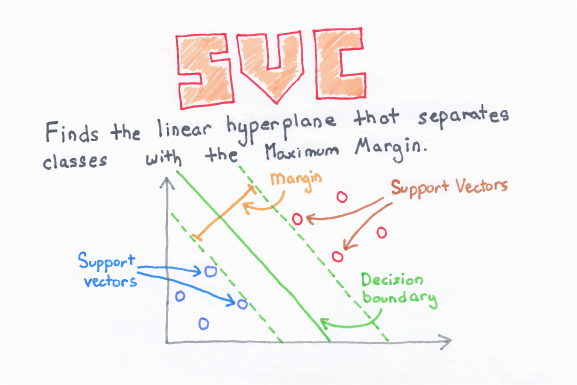 SVC
Finds the linear hyperplane that separates
classes with the Maximum Margin.
margin
Support Vectors
Support
vectors
Decision
boundary